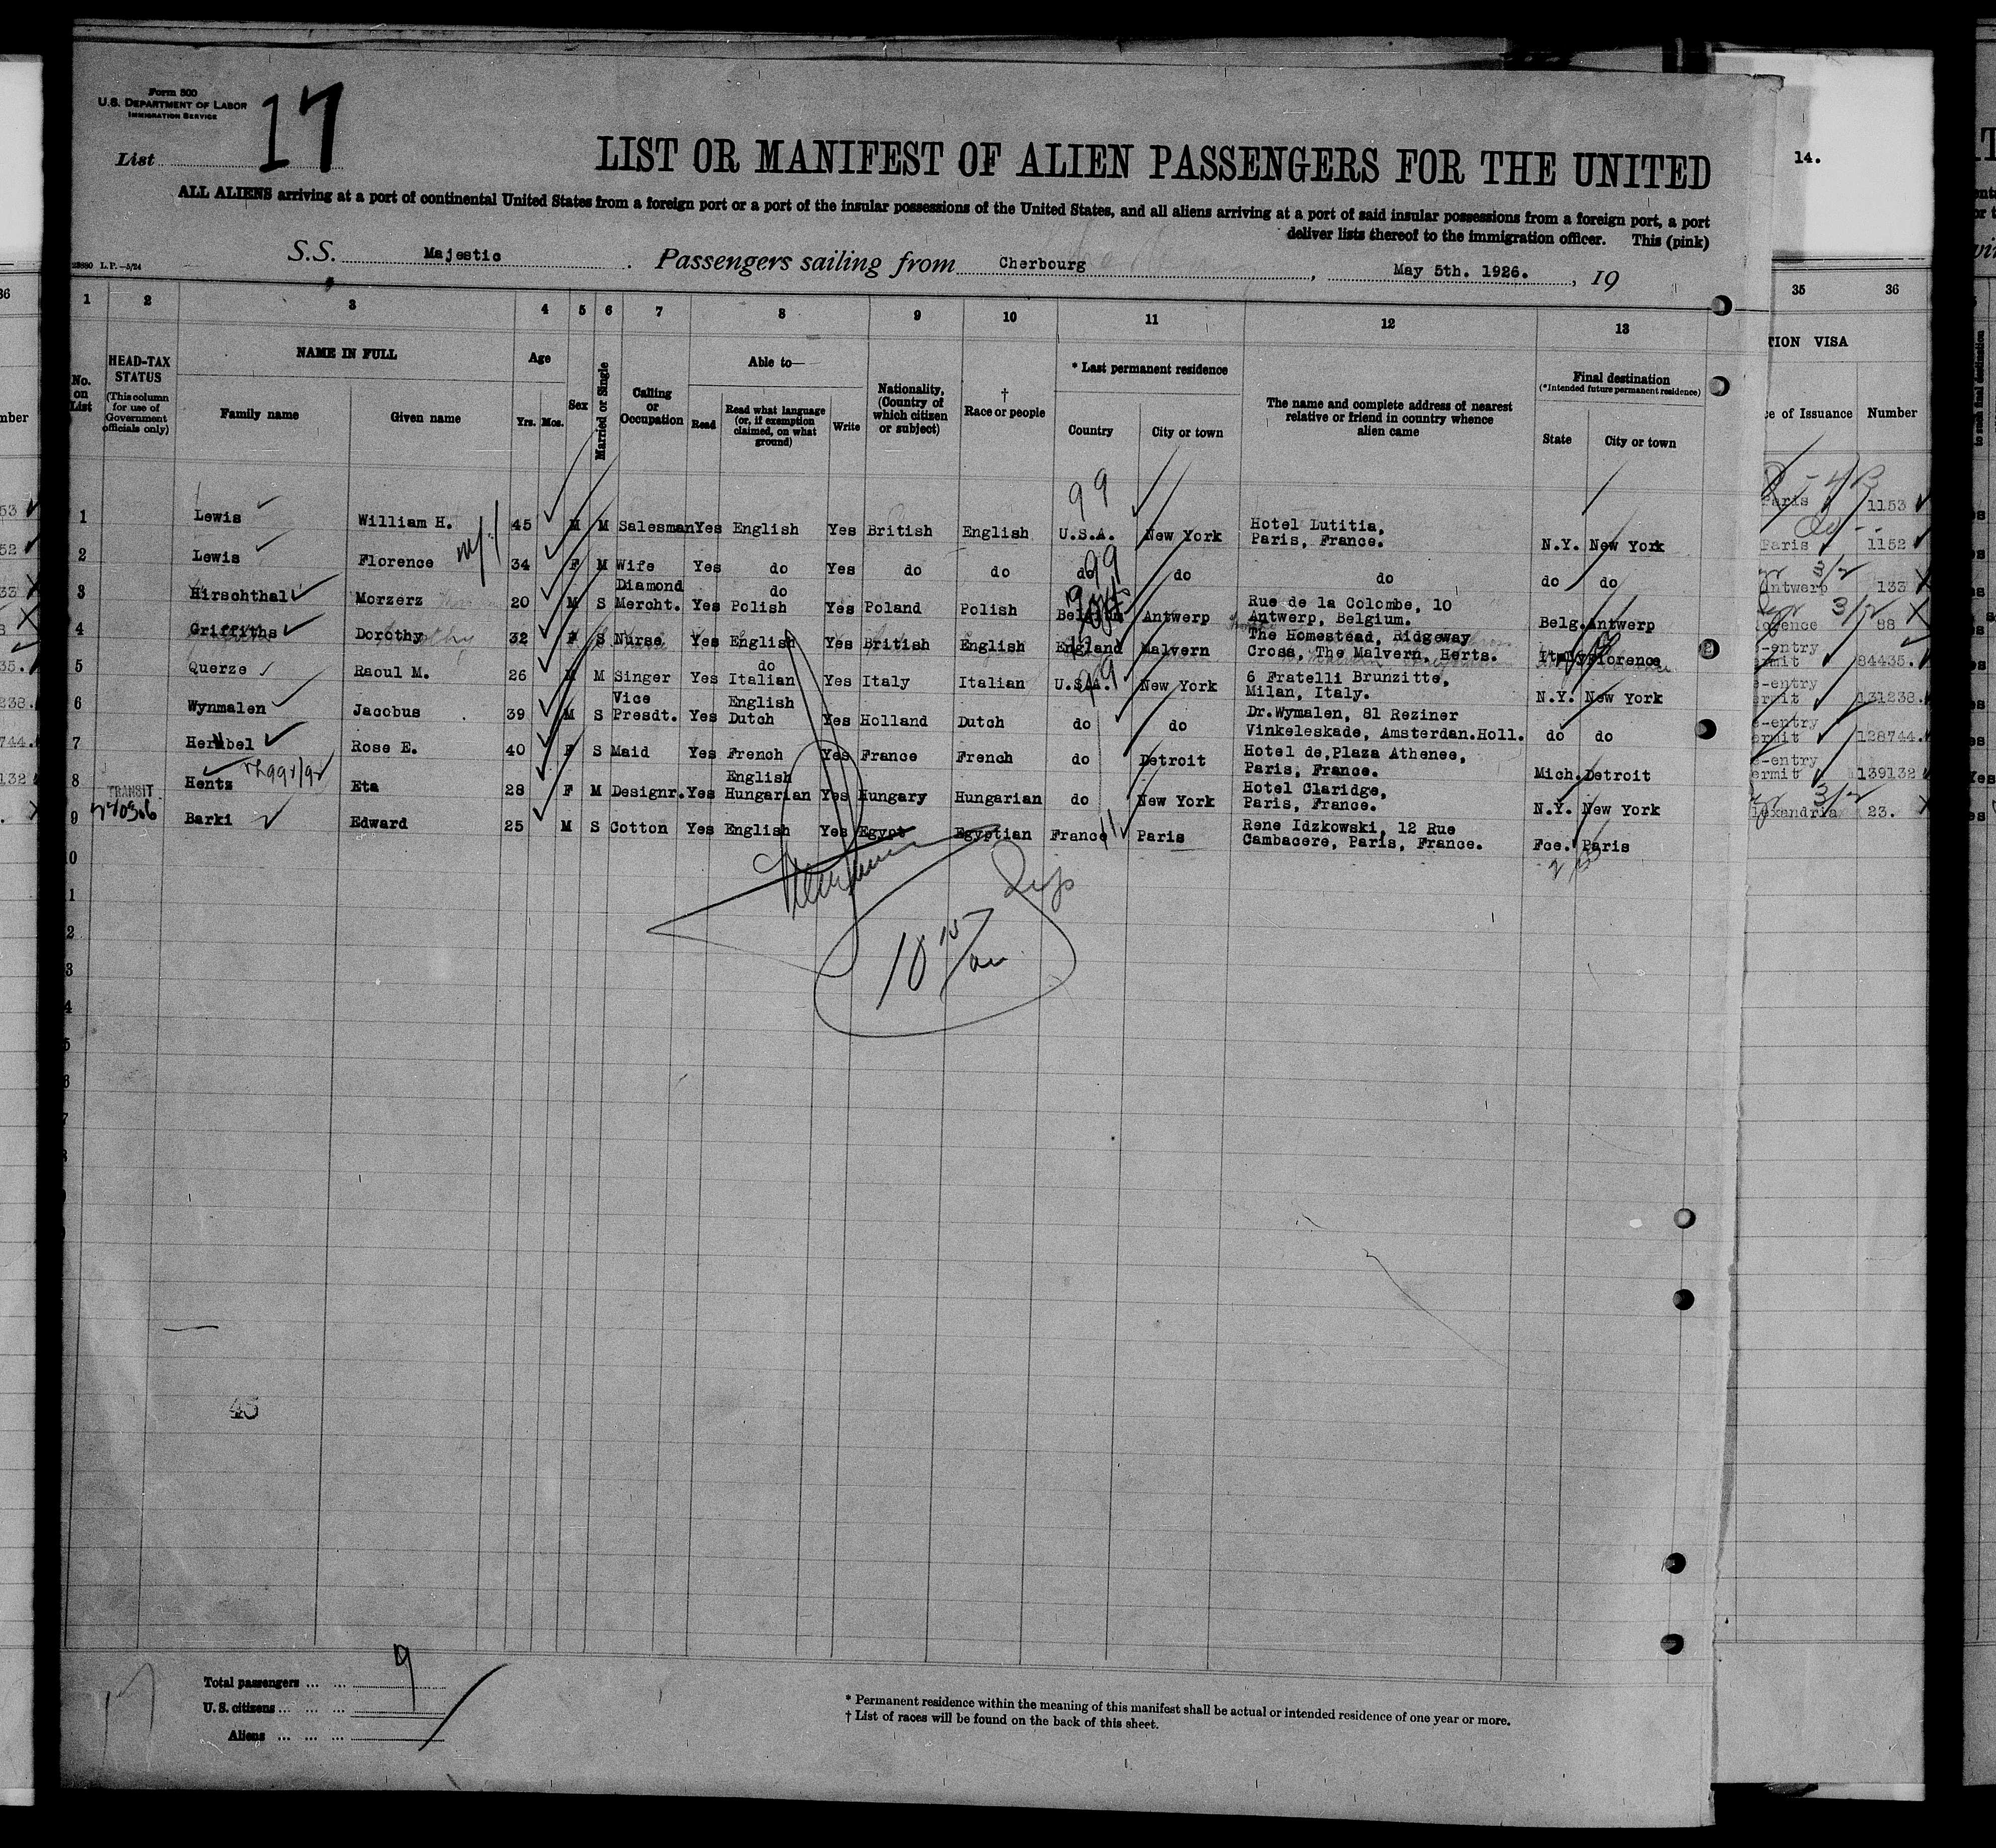 Form 500
U.S. DEPARTMENT OF LABOR
IMMIGRATION SERVICE
List 17
LIST OR MANIFEST OF ALIEN PASSENGERS FOR THE UNITED
ALL ALIENS arriving at a port of continental United States from a foreign port or a port of the insular possessions of the United States, and all aliens arriving at a port of said insular possessions from a foreign port, a port
deliver lists thereof to the immigration officer. This (pink)
L.P.-5/24
S.S. Majestic. Passengers sailing from Cherbourg, May 5th. 1926., 19
1 2 3 4 5 6 7 8 9 10 11 12 13
No. on List
HEAD-TAX STATUS
(This column for use of Government officials only)
NAME IN FULL
Family name
Given name
Age
Yrs. Mos.
Sex
Married or Single
Calling or Occupation
Able to—
Read
Read what language (or, if exemption claimed, on what ground)
Write
Nationality, (Country of which citizen or subject)
† Race or people
* Last permanent residence
Country
City or town
The name and complete address of nearest relative or friend in country whence alien came
Final destination
(*Intended future permanent residence)
State
City or town
1 Lewis William H. 45 M M Salesman Yes English Yes British English U.S.A. New York Hotel Lutitia, Paris, France. N.Y. New York
2 Lewis Florence 34 F M Wife Yes do Yes do do do do do do do
3 Hirschthal Morzerz 20 M S Diamond Mercht. Yes do Polish Yes Poland Polish Belgium Antwerp Rue de la Colombe, 10 Antwerp, Belgium. Belg. Antwerp
4 Griffiths Dorothy 32 F S Nurse Yes English Yes British English England Malvern The Homestead, Ridgeway Cross, The Malvern, Herts. Italy Florence
5 Querze Raoul M. 26 M M Singer Yes do Italian Yes Italy Italian U.S.A. New York 6 Fratelli Brunzitte, Milan, Italy. N.Y. New York
6 Wynmalen Jacobus 39 M S Vice Presdt. Yes English Dutch Yes Holland Dutch do do Dr.Wymalen, 81 Reziner Vinkeleskade, Amsterdan.Holl. do do
7 Hembel Rose E. 40 F S Maid Yes French Yes France French do Detroit Hotel de,Plaza Athenee, Paris, France. Mich. Detroit
8 Hentz Eta 28 F M Designr. Yes English Hungarian Yes Hungary Hungarian do New York Hotel Claridge, Paris, France. N.Y. New York
TRANSIT
9 Barki Edward 25 M S Cotton Yes English Yes Egypt Egyptian France Paris Rene Idzkowski, 12 Rue Cambacere, Paris, France. Fce. Paris
45
Total passengers ... ... 9
U.S. citizens ... ... ...
Aliens ... ... ...
* Permanent residence within the meaning of this manifest shall be actual or intended residence of one year or more.
† List of races will be found on the back of this sheet.
14.
35 36
VISA
of Issuance Number
Paris 1153
Paris 1152
Antwerp 133
88
84435.
131238.
128744.
139132
23.